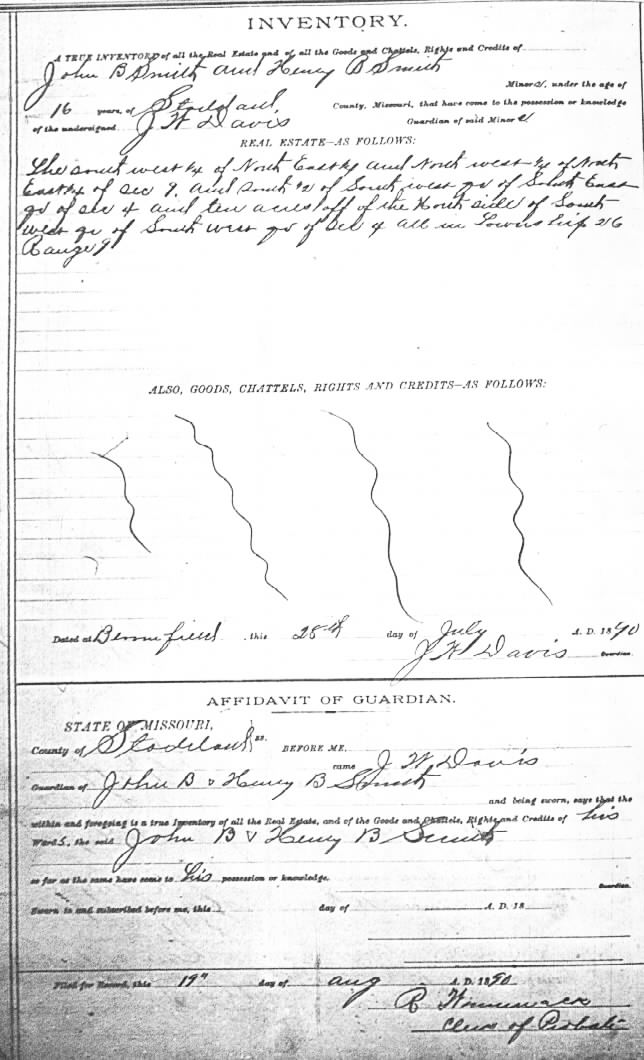 INVENTORY.
A TRUE INVENTORY of all the Real Estate and of all the Goods and Chattels, Rights and Credits of
John B Smith and Henry B Smith
Minors, under the age of
16 years, of Stoddard County, Missouri, that have come to the possession or knowledge
of the undersigned J W Davis Guardian of said Minors
REAL ESTATE—AS FOLLOWS:
The south west ¼ of North East ¼ and North west ¼ of North
East ¼ of Sec 9. and South ½ of South west qr of South East
qr of Sec 4 and ten acres off of the North side of South
west qr of South west qr of Sec 4 all in Township 26
Range 9
ALSO, GOODS, CHATTELS, RIGHTS AND CREDITS—AS FOLLOWS:
Dated at this 28th day of July A. D. 1890
J W Davis Guardian.
AFFIDAVIT OF GUARDIAN.
STATE OF MISSOURI,
County of Stoddard ss. BEFORE ME,
came J W Davis
Guardian of John B & Henry B Smith
and being sworn, says that the
within and foregoing is a true Inventory of all the Real Estate, and of the Goods and Chattels, Rights and Credits of his
Wards, the said John B & Henry B Smith
so far as the same have come to his possession or knowledge.
Guardian.
Sworn to and subscribed before me, this day of A. D. 18
Filed for Record, this 19" day of Aug A. D. 1890
R
Clerk of Probate